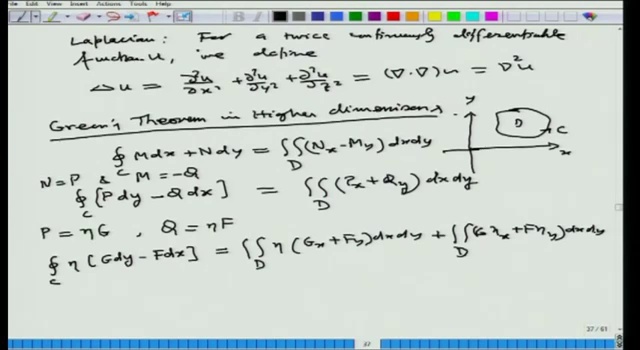 Edit View Insert Actions Tools Help
Laplacian: For a twice continuously differentiable
function u, we define
Δu = ∂²u/∂x² + ∂²u/∂y² + ∂²u/∂z² = (∇·∇)u = ∇²u
Green's Theorem in Higher dimensions
∮_C Mdx + Ndy = ∬_D (N_x - M_y) dxdy
y
D
C
x
N = P & M = -Q
∮_C [Pdy - Qdx] = ∬_D (P_x + Q_y) dxdy
P = ηG , Q = ηF
∮_C η [Gdy - Fdx] = ∬_D η (G_x + F_y) dxdy + ∬_D (Gη_x + Fη_y) dxdy
37 / 61
37